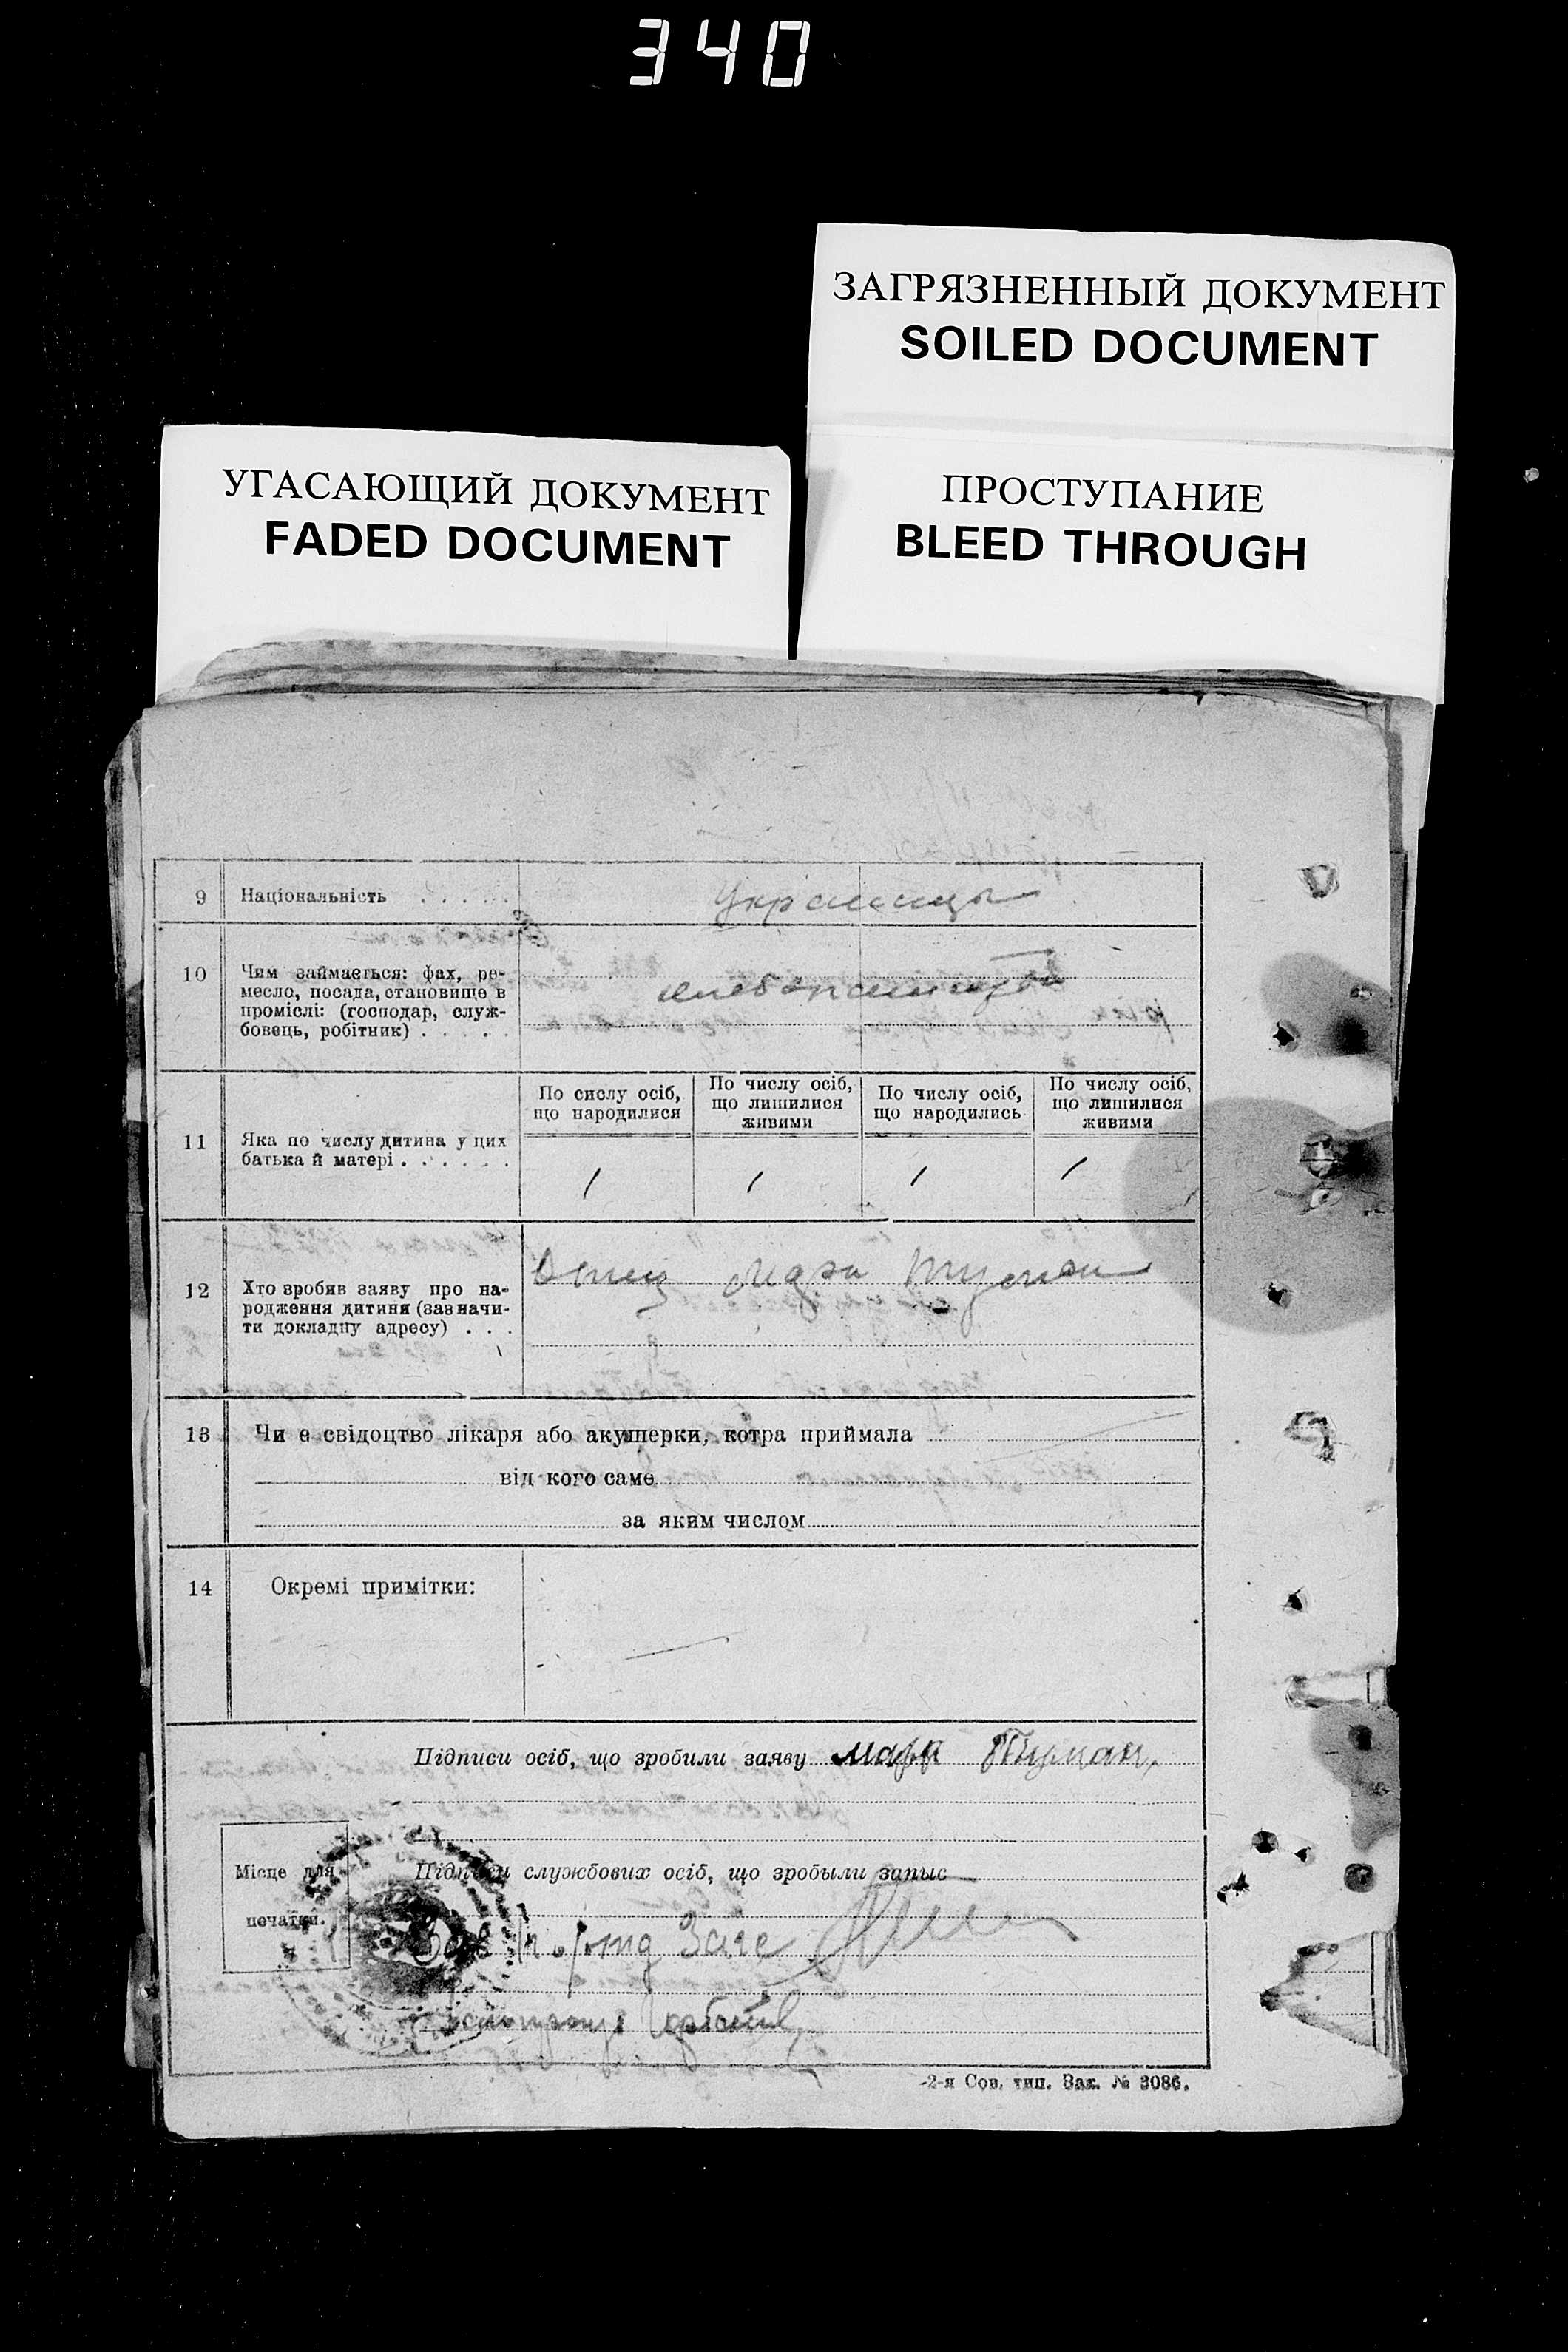 340
ЗАГРЯЗНЕННЫЙ ДОКУМЕНТ
SOILED DOCUMENT
УГАСАЮЩИЙ ДОКУМЕНТ
FADED DOCUMENT
ПРОСТУПАНИЕ
BLEED THROUGH
9 Національність . . . . . Украинцы
10 Чим займається: фах, ре-
месло, посада, становище в
проміслі: (господар, служ-
бовець, робітник) . . . .
11 Яка по числу дитина у цих
батька й матері . . . . . .
По сислу осіб,
що народилися
По числу осіб,
що лишилися
живими
По числу осіб,
що народились
По числу осіб,
що лишилися
живими
1 1 1 1
12 Хто зробив заяву про на-
родження дитини (зазначи-
ти докладну адресу) . . .
Отец Марк Тцуман
13 Чи є свідоцтво лікаря або акушерки, котра приймала
від кого саме
за яким числом
14 Окремі примітки:
Підписи осіб, що зробили заяву Марк
Місце для
печатки.
Підписи службових осіб, що зробыли запыс
Загс
2-я Сов. тип. Зак. № 3086.